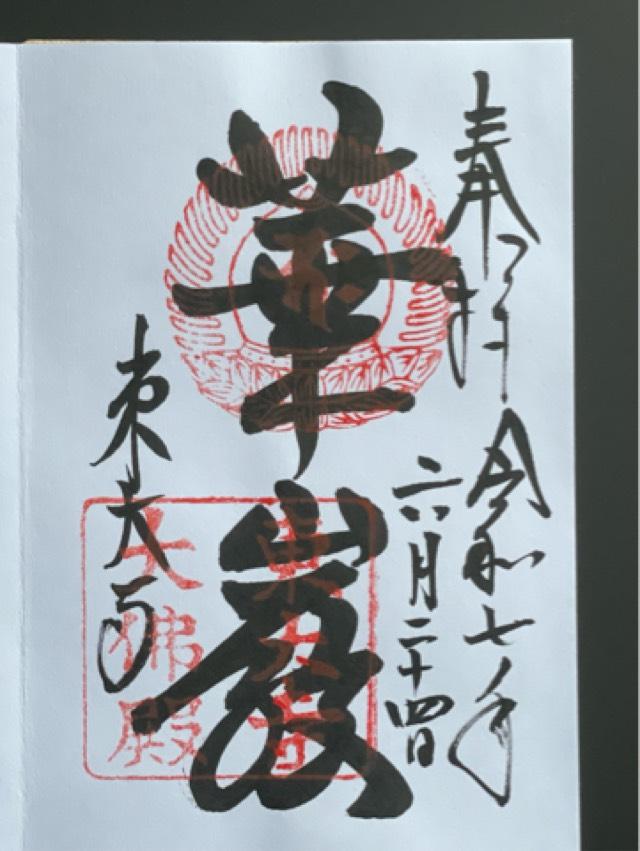 奉拝
令和七年
六月二十四日
華嚴
東大寺
東大寺
大佛殿